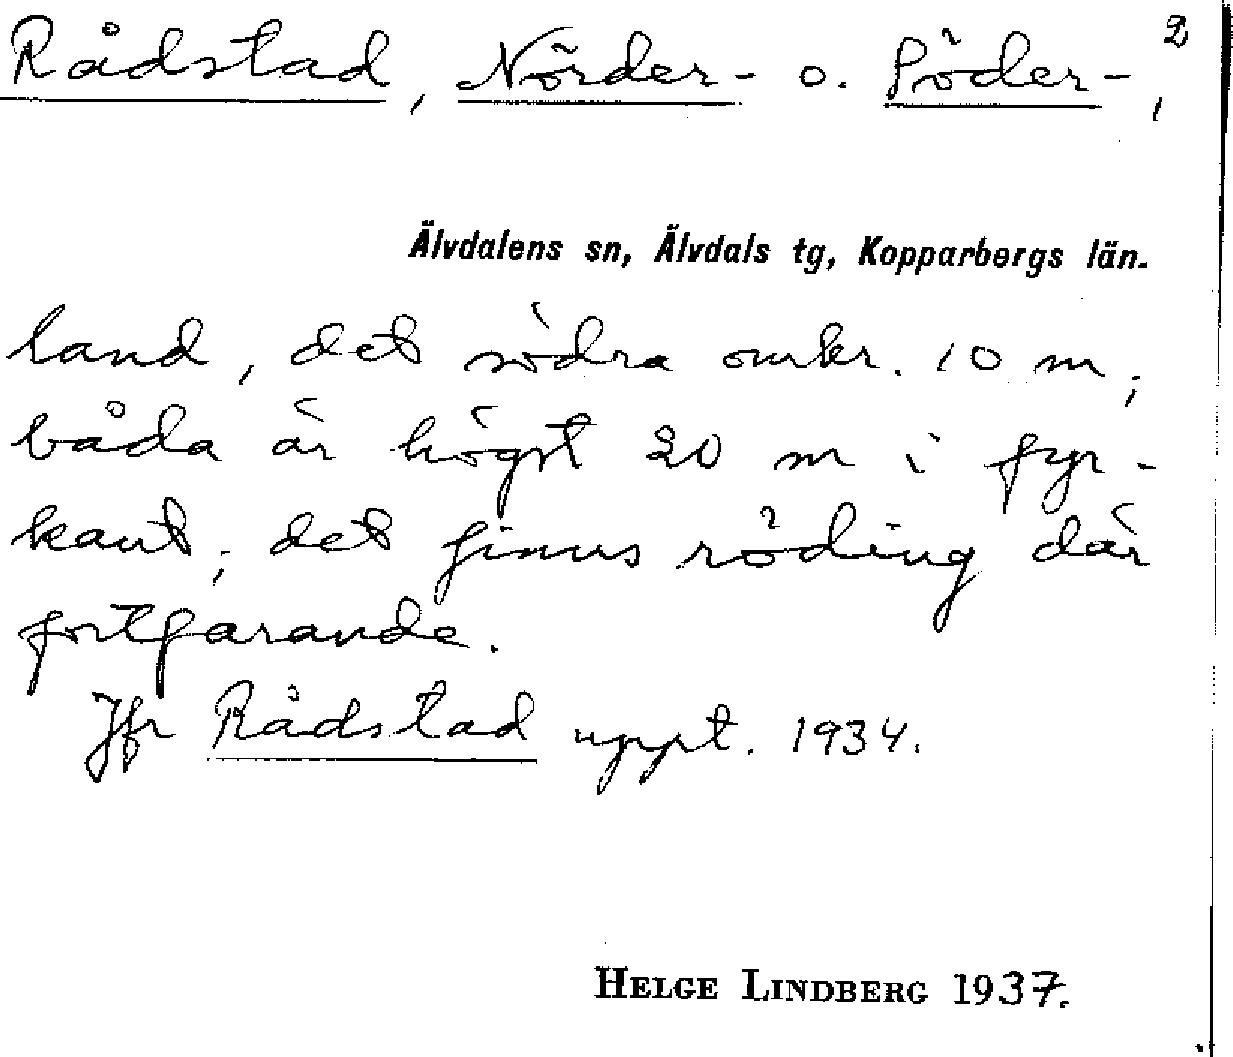 Rådstad, Nörder- o. Söder-, 2
Älvdalens sn, Älvdals tg, Kopparbergs län.
land, det södra omkr. 10 m;
båda är högst 20 m i fyr-
kant; det finns röding där
fortfarande.
Jfr Rådstad uppt. 1934.
HELGE LINDBERG 1937.